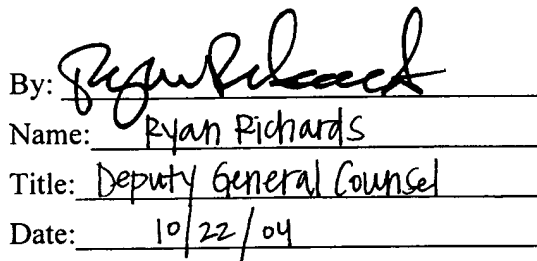 By:
Name: Ryan Richards
Title: Deputy General Counsel
Date: 10/22/04